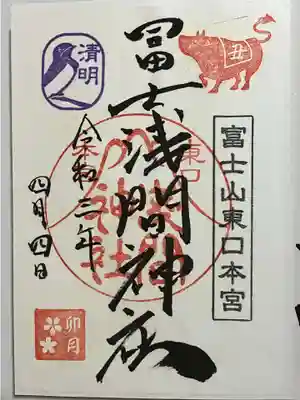 丑
富士山東口本宮
東口
冨士浅間神社
清明
令和三年
四月四日
卯月